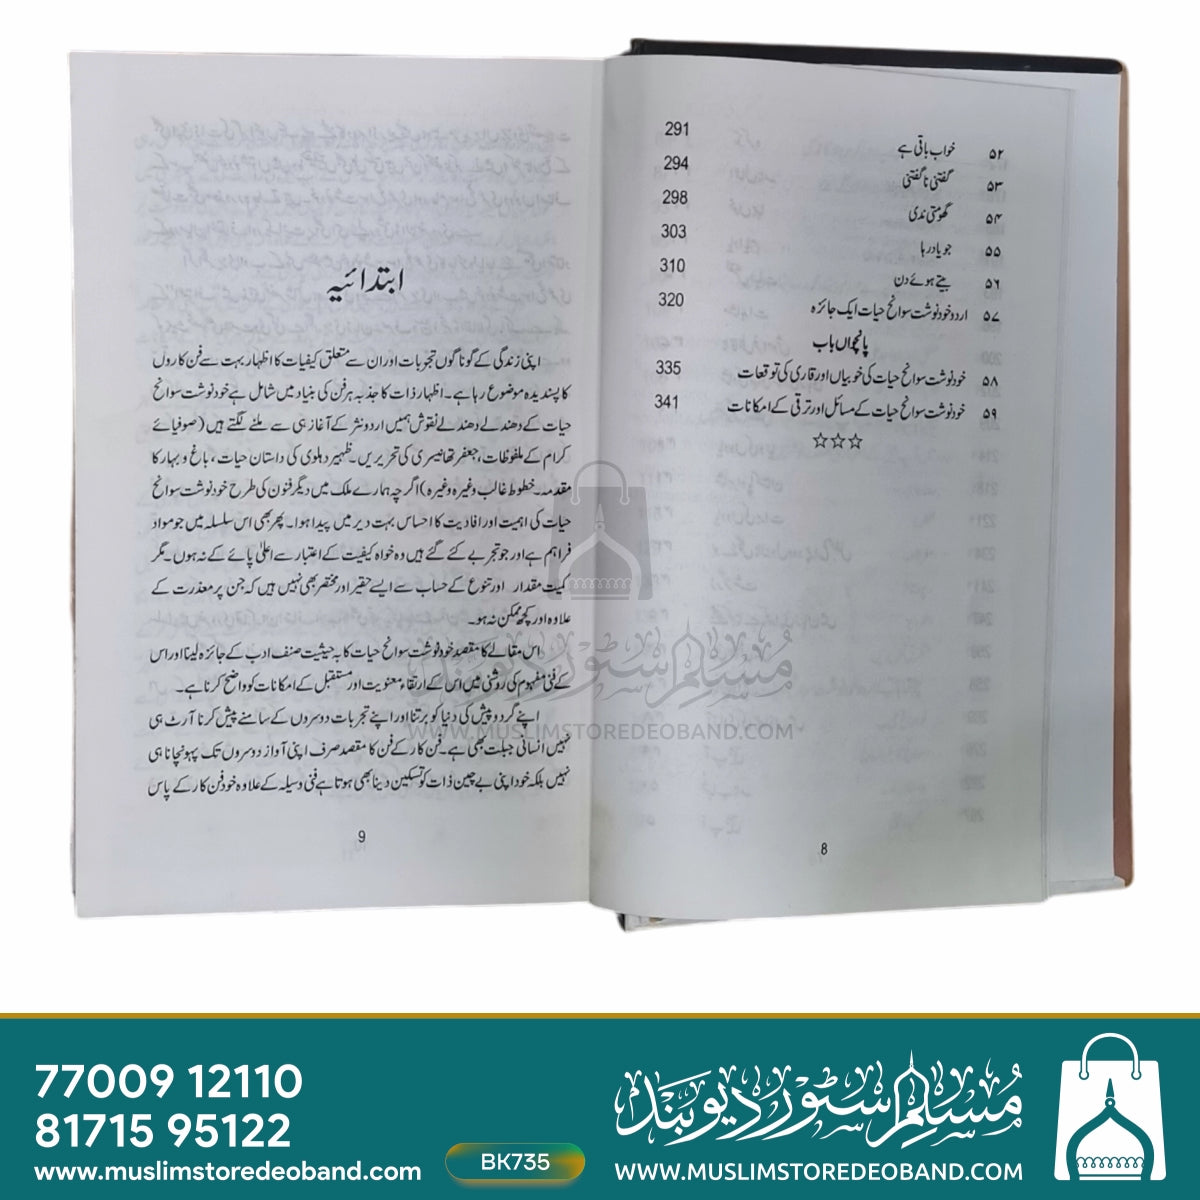 ۵۲ خواب باقی ہے 291
۵۳ گفتنی نا گفتنی 294
۵۴ گھومتی ندی 298
۵۵ جو یاد رہا 303
۵۶ بیتے ہوئے دن 310
۵۷ اردو خودنوشت سوانح حیات ایک جائزہ 320
پانچواں باب
۵۸ خودنوشت سوانح حیات کی خوبیاں اور قاری کی توقعات 335
۵۹ خودنوشت سوانح حیات کے مسائل اور ترقی کے امکانات 341
☆☆☆
8
ابتدائیہ
اپنی زندگی کے گوناگوں تجربات اور ان سے متعلق کیفیات کا اظہار بہت سے فن کاروں
کا پسندیدہ موضوع رہا ہے۔ اظہار ذات کا جذبہ ہر فن کی بنیاد میں شامل ہے خودنوشت سوانح
حیات کے دھندلے دھندلے نقوش ہمیں اردو نثر کے آغاز ہی سے ملنے لگتے ہیں (صوفیائے
کرام کے ملفوظات، جعفر تھانیسری کی تحریریں۔ ظہیر دہلوی کی داستان حیات، باغ و بہار کا
مقدمہ۔ خطوط غالب وغیرہ وغیرہ) اگرچہ ہمارے ملک میں دیگر فنون کی طرح خودنوشت سوانح
حیات کی اہمیت اور افادیت کا احساس بہت دیر میں پیدا ہوا۔ پھر بھی اس سلسلہ میں جو مواد
فراہم ہے اور جو تجربے کئے گئے ہیں وہ خواہ کیفیت کے اعتبار سے اعلیٰ پائے کے نہ ہوں۔ مگر
کمیت مقدار اور تنوع کے حساب سے ایسے حقیر اور مختصر بھی نہیں ہیں کہ جن پر معذرت کے
علاوہ اور کچھ ممکن نہ ہو۔
اس مقالے کا مقصد خودنوشت سوانح حیات کا بہ حیثیت صنف ادب کے جائزہ لینا اور اس
کے فنی مفہوم کی روشنی میں اس کے ارتقاء معنویت اور مستقبل کے امکانات کو واضح کرنا ہے۔
اپنے گرد و پیش کی دنیا کو برتنا اور اپنے تجربات دوسروں کے سامنے پیش کرنا آرٹ ہی
نہیں انسانی جبلت بھی ہے۔ فن کار کے فن کا مقصد صرف اپنی آواز دوسروں تک پہونچانا ہی
نہیں بلکہ خود اپنی بے چین ذات کو تسکین دینا بھی ہوتا ہے فنی وسیلہ کے علاوہ خود فن کار کے پاس
9
مسلم سٹور دیوبند
WWW.MUSLIMSTOREDEOBAND.COM
77009 12110
81715 95122
www.muslimstoredeoband.com
BK735
مسلم سٹور دیوبند
WWW.MUSLIMSTOREDEOBAND.COM